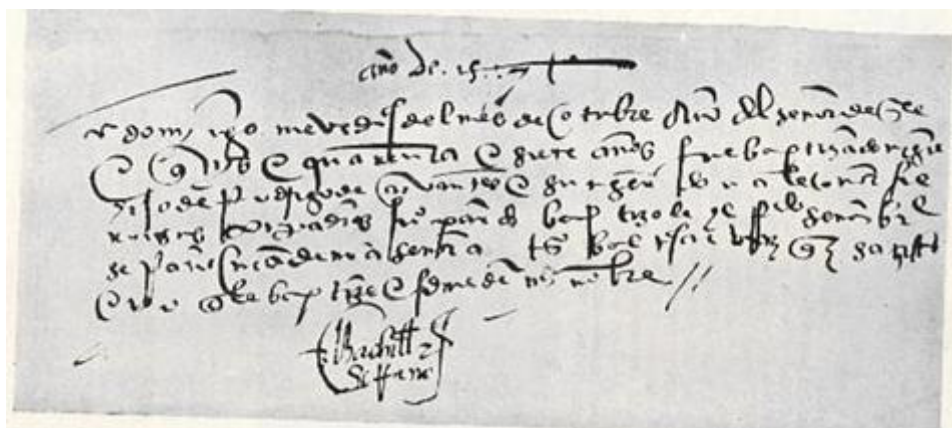 año de
domingo nueve dias del mes de otubre Año del señor de mill
e quis e quarenta e siete años fue baptizado miguel
hijo de Rodrigo de cervantes e su muger doña leonor fue
ron sus conpadres juº pardo baptizole el Rdo señor br
serrano cura de nra señora ts baltasar vazqz sacristan
e yo q le baptize e firme de mi nonbre //
el bachiller
serrano